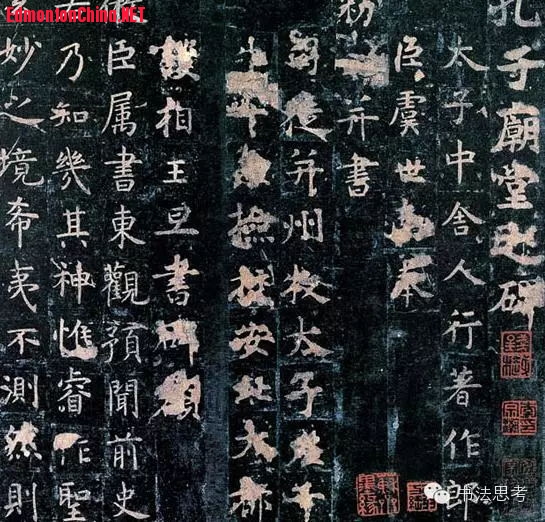 EdmontonChina.NET
孔子廟堂之碑
太子中舍人行著作郎
臣虞世南奉
勑撰并書
司徒并州牧太子左千
牛率兼檢校安北大都
護相王旦書碑額
臣属書東觀預聞前史
乃知幾其神惟睿作聖
妙之境希夷不測然則
书法思考